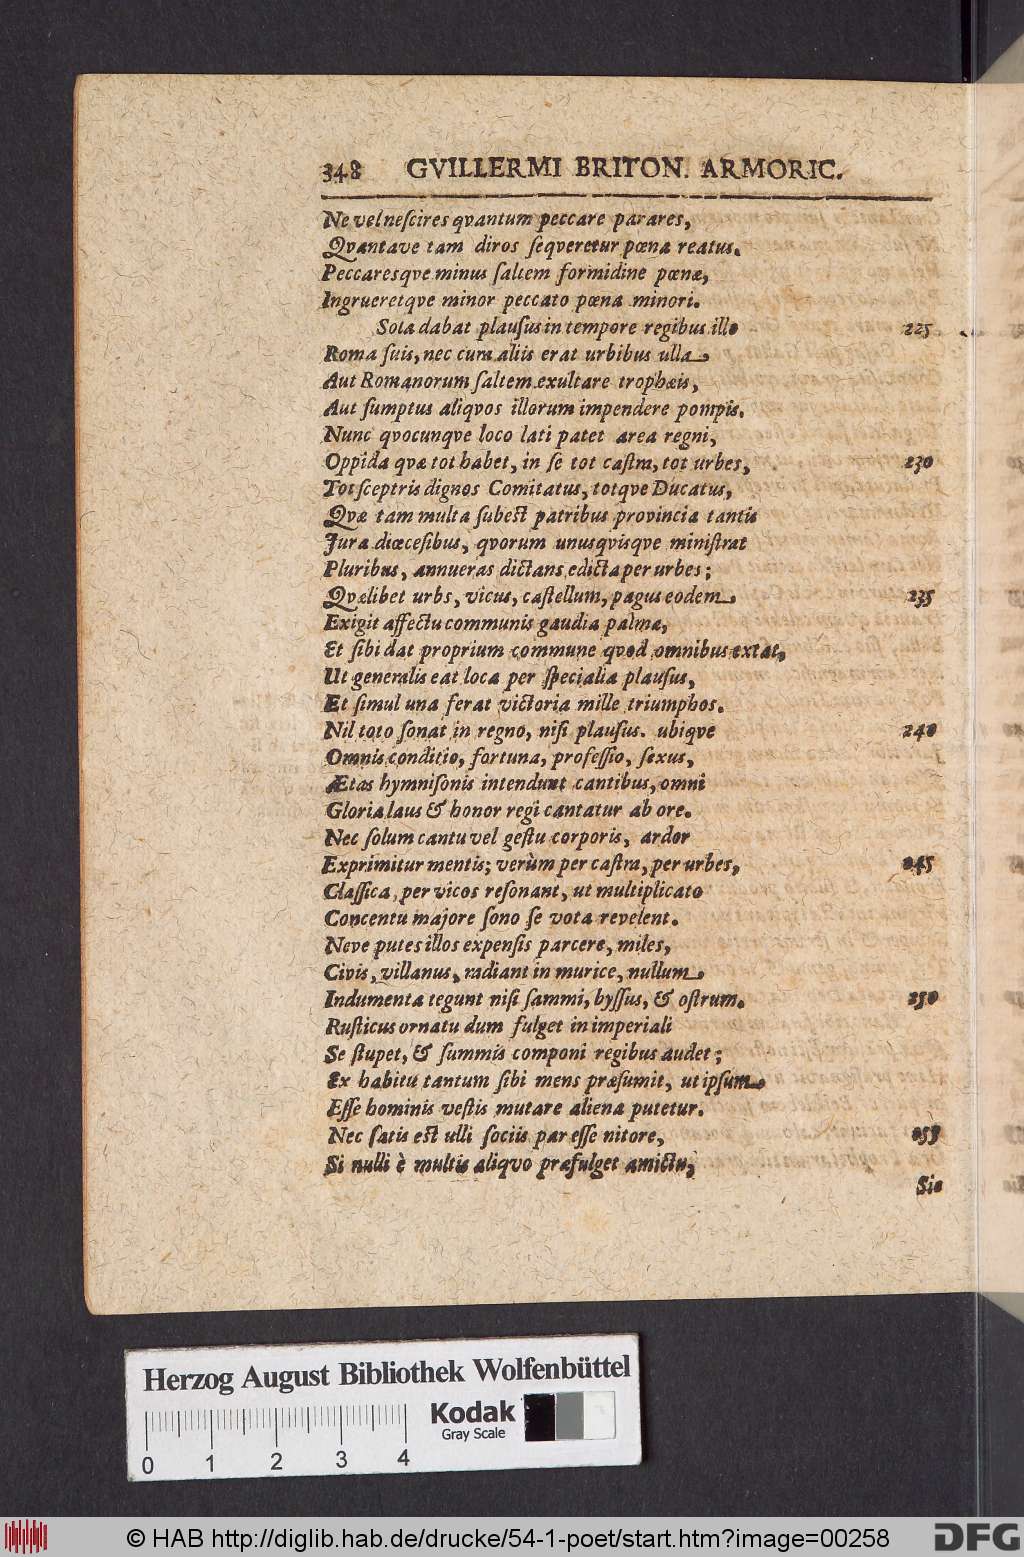 348 GVILLERMI BRITON. ARMORIC.
Ne vel neſcires qvantum peccare parares,
Qvantave tam diros ſeqveretur pœna reatus.
Peccaresqve minus ſaltem formidine pœnæ,
Ingrueretqve minor peccato pœna minori.
Sola dabat plauſus in tempore regibus illo 225
Roma ſuis, nec cura aliis erat urbibus ulla
Aut Romanorum ſaltem exultare trophæis,
Aut ſumptus aliqvos illorum impendere pompis.
Nunc qvocunqve loco lati patet area regni,
Oppida qvæ tot habet, in ſe tot caſtra, tot urbes, 230
Tot ſceptris dignos Comitatus, totqve Ducatus,
Qvæ tam multa ſubest patribus provincia tantis
Jura diœceſibus, qvorum unusqvisqve miniſtrat
Pluribus, annueras dictans edicta per urbes;
Qvælibet urbs, vicus, caſtellum, pagus eodem 235
Exigit affectu communis gaudia palmæ,
Et ſibi dat proprium commune qvod omnibus extat,
Ut generalis eat loca per ſpecialia plauſus,
Et ſimul una ferat victoria mille triumphos.
Nil toto ſonat in regno, niſi plauſus. ubiqve 240
Omnis conditio, fortuna, profeſſio, ſexus,
Ætas hymniſonis intendunt cantibus, omni
Gloria laus & honor regi cantatur ab ore.
Nec ſolum cantu vel geſtu corporis, ardor
Exprimitur mentis; verùm per caſtra, per urbes, 245
Claſſica, per vicos reſonant, ut multiplicato
Concentu majore ſono ſe vota revelent.
Neve putes illos expenſis parcere, miles,
Civis, villanus, radiant in murice, nullum
Indumenta tegunt niſi ſammi, byſſus, & oſtrum. 250
Ruſticus ornatu dum fulget in imperiali
Se ſtupet, & ſummis componi regibus audet;
Ex habitu tantum ſibi mens præſumit, ut ipſum
Eſſe hominis veſtis mutare aliena putetur.
Nec ſatis est ulli ſociis par eſſe nitore, 255
Si nulli è multis aliqvo præfulget amictu,
Sic
Herzog August Bibliothek Wolfenbüttel
Kodak
Gray Scale
0 1 2 3 4
© HAB http://diglib.hab.de/drucke/54-1-poet/start.htm?image=00258
DFG